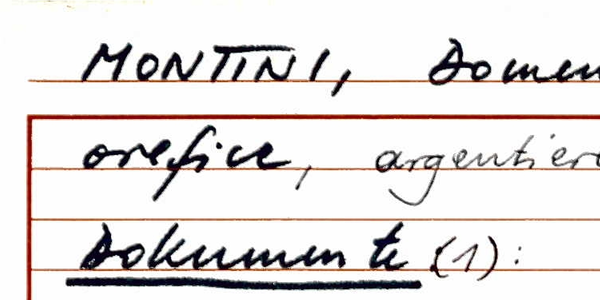 MONTINI, Domen
orefice, argentiere
Dokumente (1):